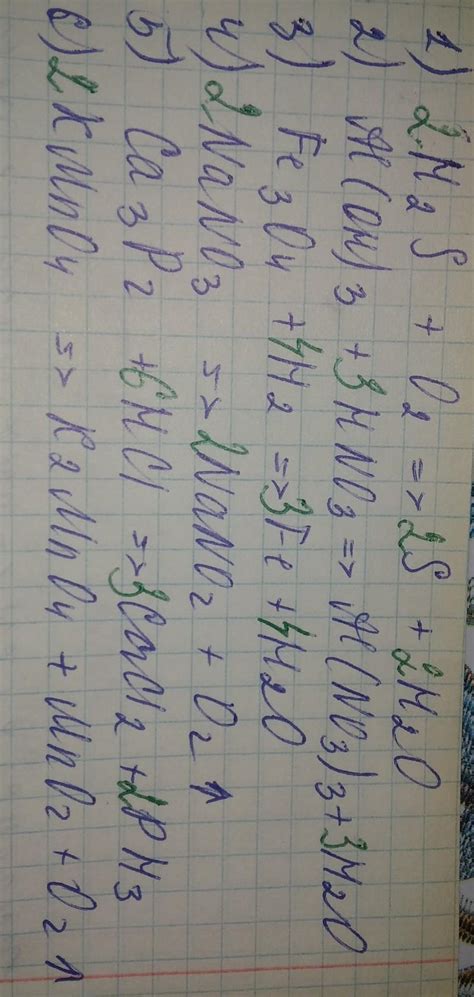 1) 2H2S + O2 => 2S + 2H2O
2) Al(OH)3 + 3HNO3 => Al(NO3)3 + 3H2O
3) Fe3O4 + 4H2 => 3Fe + 4H2O
4) 2NaNO3 => 2NaNO2 + O2↑
5) Ca3P2 + 6HCl => 3CaCl2 + 2PH3
6) 2KMnO4 => K2MnO4 + MnO2 + O2↑